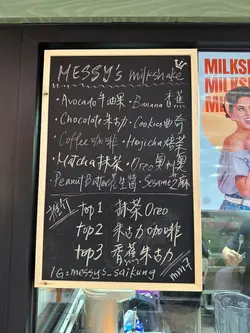 MESSY's milkshake
· Avocado 牛油果 · Banana 香蕉
· Chocolate 朱古力 · Cookies 曲奇
· Coffee 咖啡 · Hojicha 焙茶
· Matcha 抹茶 · Oreo 奧利奧
· Peanut Butter 花生醬 · Sesame 芝麻
推介
top 1 抹茶 Oreo
top 2 朱古力咖啡
top 3 香蕉朱古力
IG = messys_saikung
MILKS
MILKS
MILKS